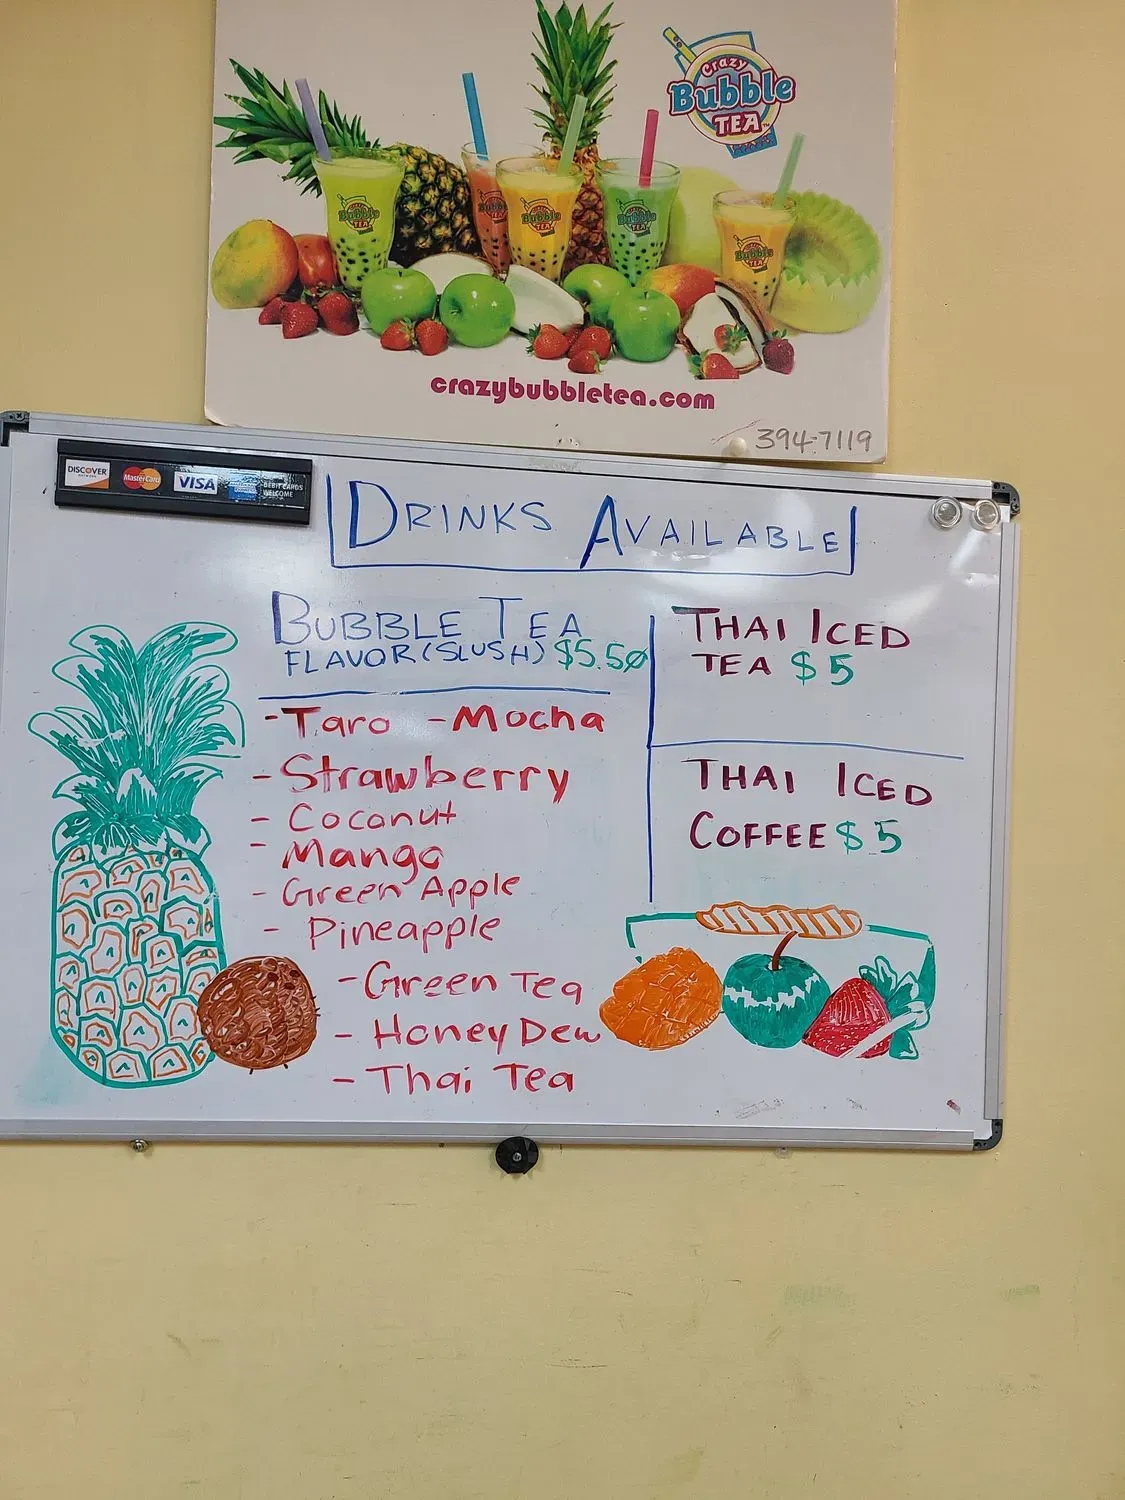 Crazy
Bubble
TEA
Bubble
TEA
Bubble
TEA
Bubble
TEA
Bubble
TEA
Bubble
TEA
crazybubbletea.com
394-7119
DISCOVER
MasterCard
VISA
DEBIT CARDS
WELCOME
DRINKS AVAILABLE
BUBBLE TEA
FLAVOR (SLUSH) $5.50
- Taro - Mocha
- Strawberry
- Coconut
- Mango
- Green Apple
- Pineapple
- Green Tea
- Honey Dew
- Thai Tea
THAI ICED
TEA $5
THAI ICED
COFFEE $5